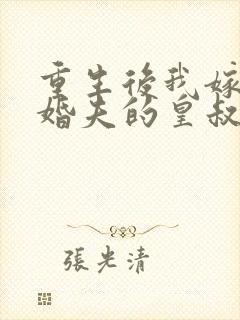 重生後我嫁
婚夫的皇叔
張光清